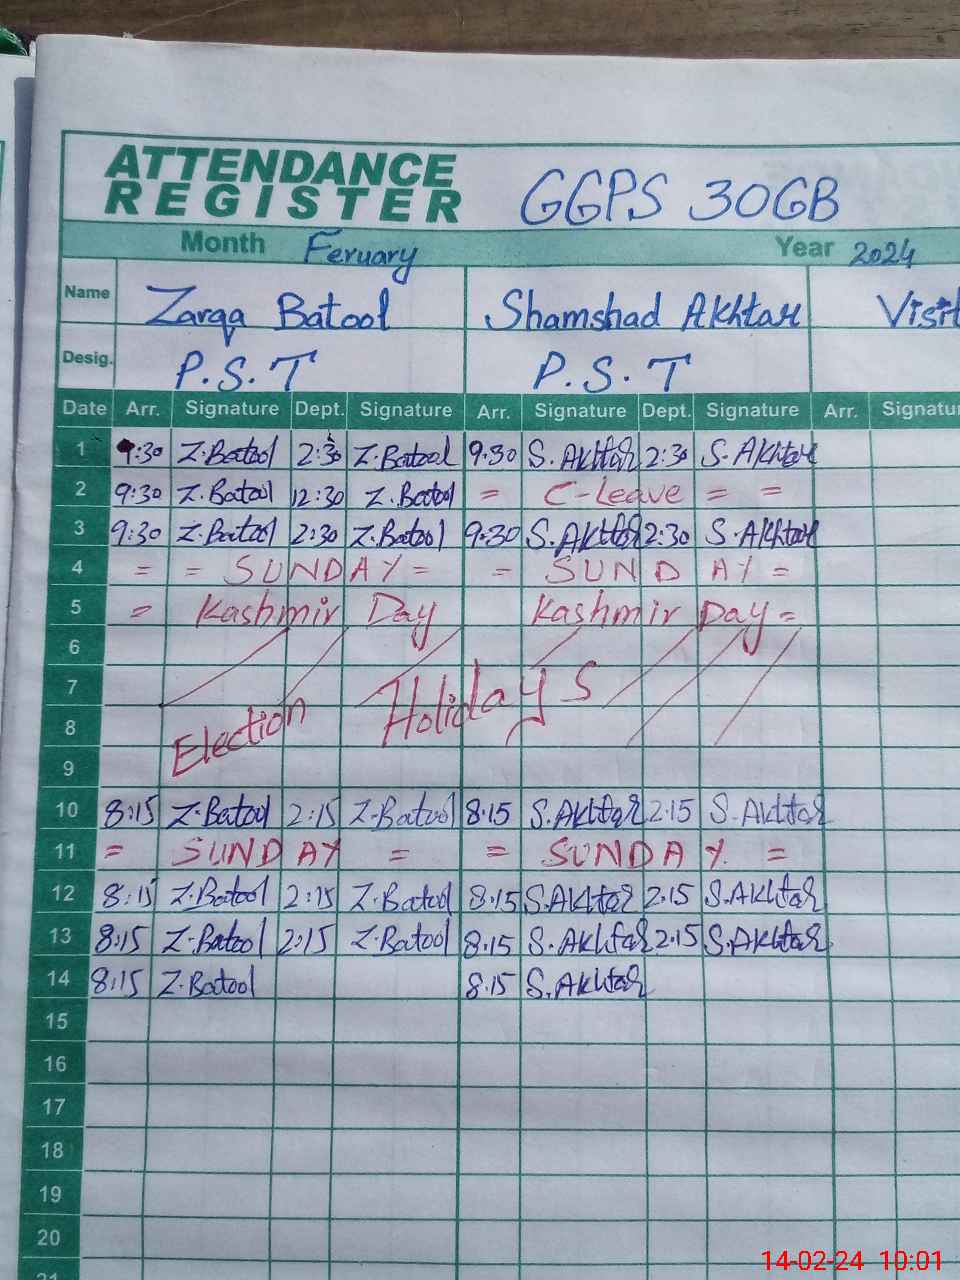 ATTENDANCE
REGISTER GGPS 30GB
Month Feruary Year 2024
Name Zarqa Batool Shamshad Akhtar Visit
Desig. P.S.T P.S.T
Date Arr. Signature Dept. Signature Arr. Signature Dept. Signature Arr. Signatur
1 9:30 Z.Batool 2:30 Z.Batool 9.30 S.Akhtar 2:30 S.Akhtar
2 9:30 Z.Batool 12:30 Z.Batool = C-Leave = =
3 9:30 Z.Batool 2:30 Z.Batool 9:30 S.Akhtar 2:30 S.Akhtar
4 = = SUNDAY = = SUNDAY =
5 = Kashmir Day Kashmir Day =
6
7 Holidays
8 Election
9
10 8:15 Z.Batool 2:15 Z.Batool 8.15 S.Akhtar 2.15 S.Akhtar
11 = SUNDAY = = SUNDAY. =
12 8:15 Z.Batool 2:15 Z.Batool 8.15 S.Akhtar 2.15 S.Akhtar
13 8:15 Z.Batool 2:15 Z.Batool 8.15 S.Akhtar 2.15 S.Akhtar
14 8:15 Z.Batool 8.15 S.Akhtar
15
16
17
18
19
20
21
14-02-24 10:01